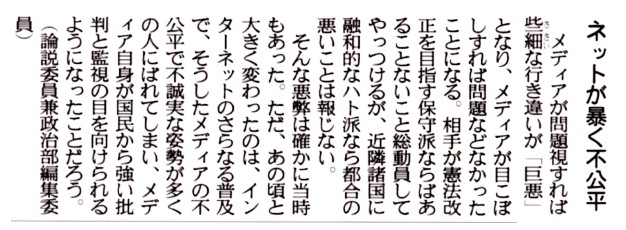 ネットが暴く不公平
メディアが問題視すれば
些細な行き違いが「巨悪」
となり、メディアが目こぼ
しすれば問題などなかった
ことになる。相手が憲法改
正を目指す保守派ならばあ
ることないこと総動員して
やっつけるが、近隣諸国に
融和的なハト派なら都合の
悪いことは報じない。
そんな悪弊は確かに当時
もあった。ただ、あの頃と
大きく変わったのは、イン
ターネットのさらなる普及
で、そうしたメディアの不
公平で不誠実な姿勢が多く
の人にばれてしまい、メデ
ィア自身が国民から強い批
判と監視の目を向けられる
ようになったことだろう。
（論説委員兼政治部編集委
員）